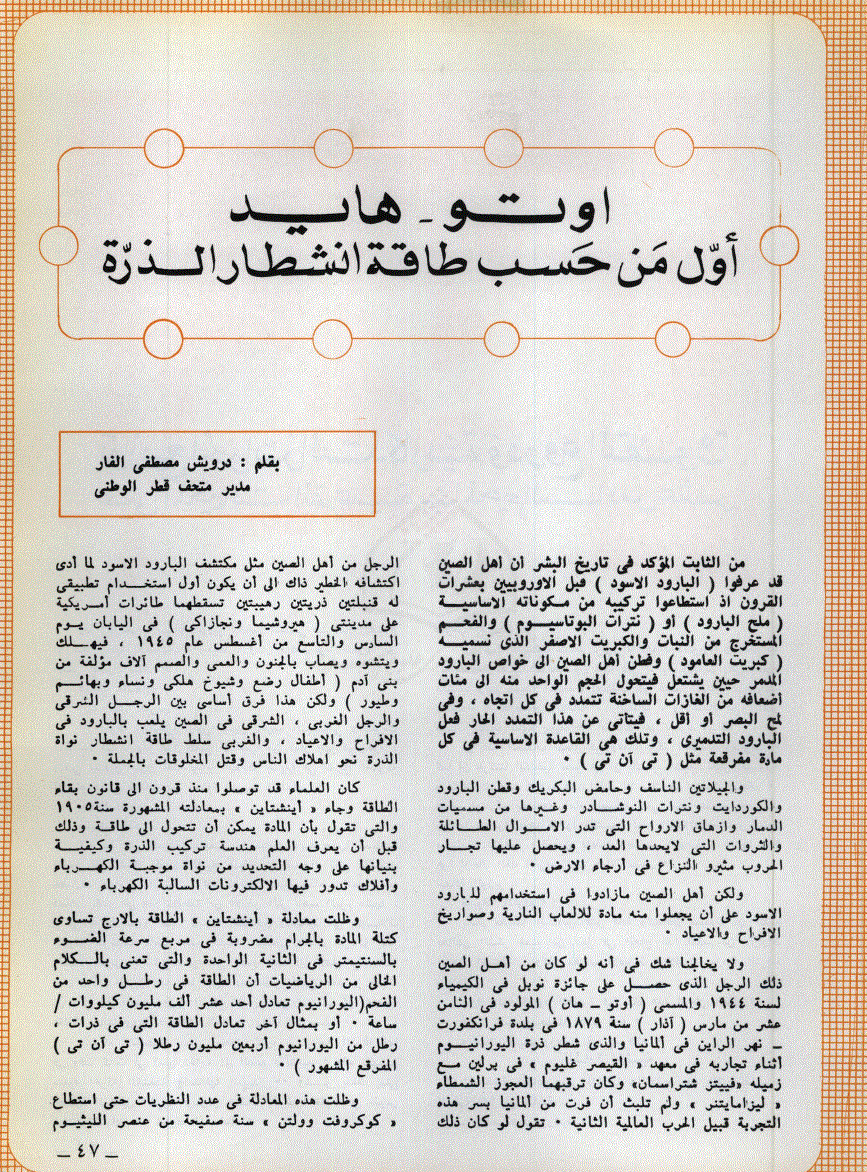 اوتو - هايد
أوّل مَن حَسب طاقة انشطار الذرّة
بقلم : درويش مصطفى الفار
مدير متحف قطر الوطنى
من الثابت المؤكد فى تاريخ البشر أن أهل الصين
قد عرفوا ( البارود الاسود ) قبل الاوروبيين بعشرات
القرون اذ استطاعوا تركيبه من مكوناته الاساسية
( ملح البارود ) أو ( نترات البوتاسيوم ) والفحم
المستخرج من النبات والكبريت الاصفر الذى نسميه
( كبريت العامود ) وفطن أهل الصين الى خواص البارود
المدمر حيين يشتعل فيتحول الحجم الواحد منه الى مئات
أضعافه من الغازات الساخنة تتمدد فى كل اتجاه ، وفى
لمح البصر أو أقل ، فيتأتى عن هذا التمدد الحار فعل
البارود التدميرى ، وتلك هى القاعدة الاساسية فى كل
مادة مفرقعة مثل ( تى آن تى ) ٠
والجيلاتين الناسف وحامض البكريك وقطن البارود
والكوردايت ونترات النوشادر وغيرها من مسميات
الدمار وازهاق الارواح التى تدر الاموال الطائلة
والثروات التى لايحدها العد ، ويحصل عليها تجار
الحروب مثيرو النزاع فى أرجاء الارض ٠
ولكن أهل الصين مازادوا فى استخدامهم للبارود
الاسود على أن يجعلوا منه مادة للالعاب النارية وصواريخ
الافراح والاعياد ٠
ولا يخالجنا شك فى أنه لو كان من أهل الصين
ذلك الرجل الذى حصل على جائزة نوبل فى الكيمياء
لسنة ١٩٤٤ والمسمى ( أوتو ــ هان ) المولود فى الثامن
عشر من مارس ( آذار ) سنة ١٨٧٩ فى بلدة فرانكفورت
ــ نهر الراين فى ألمانيا والذى شطر ذرة اليورانيوم
أثناء تجاربه فى معهد « القيصر غليوم » فى برلين مع
زميله «فييتز شتراسمان» وكان ترقبهما العجوز الشمطاء
« ليزامايتنر » ولم تلبث أن فرت من ألمانيا بسر هذه
التجربة قبيل الحرب العالمية الثانية ٠ تقول لو كان ذلك
الرجل من أهل الصين مثل مكتشف البارود الاسود لما أدى
اكتشافه الخطير ذاك الى أن يكون أول استخدام تطبيقى
له قنبلتين ذريتين رهيبتين تسقطهما طائرات أمريكية
على مدينتى ( هيروشيما ونجازاكى ) فى اليابان يوم
السادس والتاسع من أغسطس عام ١٩٤٥ ، فيهلك
ويتشوه ويصاب بالجنون والعمى والصمم آلاف مؤلفة من
بنى آدم ( أطفال رضع وشيوخ هلكى ونساء وبهائم
وطيور ) ولكن هذا فرق أساسى بين الرجل الشرقى
والرجل الغربى ، الشرقى فى الصين يلعب بالبارود فى
الافراح والاعياد ، والغربى سلط طاقة انشطار نواة
الذرة نحو اهلاك الناس وقتل المخلوقات بالجملة ٠
كان العلماء قد توصلوا منذ قرون الى قانون بقاء
الطاقة وجاء « أينشتاين » بمعادلته المشهورة سنة ١٩٠٥
والتى تقول بأن المادة يمكن أن تتحول الى طاقة وذلك
قبل أن يعرف العلم هندسة تركيب الذرة وكيفية
بنيانها على وجه التحديد من نواة موجبة الكهرباء
وأفلاك تدور فيها الالكترونات السالبة الكهرباء ٠
وظلت معادلة « أينشتاين » الطاقة بالارج تساوى
كتلة المادة بالجرام مضروبة فى مربع سرعة الضوء
بالسنتيمتر فى الثانية الواحدة والتى تعنى بالكلام
الخالى من الرياضيات أن الطاقة فى رطل واحد من
الفحم(اليورانيوم تعادل أحد عشر ألف مليون كيلووات /
ساعة ٠ أو بمثال آخر تعادل الطاقة التى فى ذرات ،
رطل من اليورانيوم أربعين مليون رطلا ( تى آن تى )
المفرقع المشهور ) ٠
وظلت هذه المعادلة فى عدد النظريات حتى استطاع
« كوكروفت وولتن » سنة صفيحة من عنصر الليثيوم
ــ ٤٧ ــ